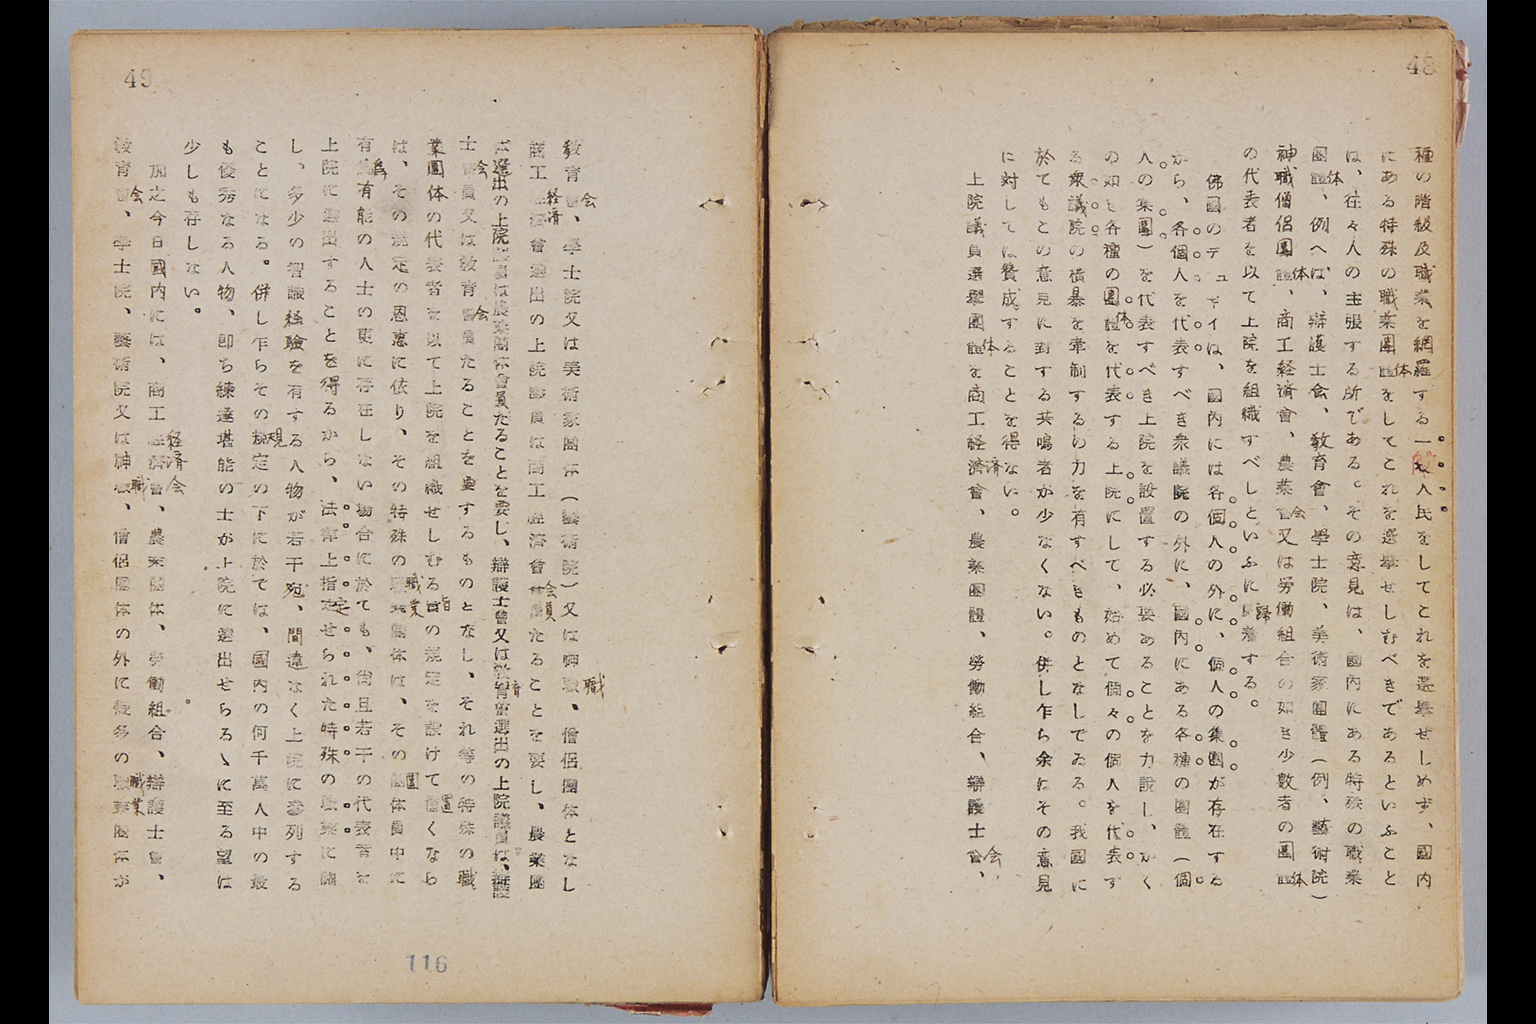 48
種の階級及職業を網羅する一般人民をしてこれを選擧せしめず、國内
にある特殊の職業團体をしてこれを選擧せしむべきであるといふこと
は、往々人の主張する所である。その意見は、國内にある特殊の職業
團体、例へば、辯護士会、敎育會、學士院、美術家團體(例、藝術院)
神職僧侶團体、商工経済會、農業会又は労働組合の如き少數者の團体
の代表者を以て上院を組織すべしといふに歸着する。
佛國のデュギイは、國内には各個人の外に、個人の集團が存在する
から、各個人を代表すべき衆議院の外に、國内にある各種の團體(個
人の集團)を代表すべき上院を設置する必要あることを力說し、かく
の如き各種の團体を代表する上院にして、始めて個々の個人を代表す
る衆議院の横暴を牽制するの力を有すべきものとなしてゐる。我國に
於てもこの意見に對する共鳴者が少なくない。併し乍ら余はその意見
に対しては賛成することを得ない。
上院議員選擧團体を商工経済會、農業團體、勞働組合、辯護士会、
49
敎育会、學士院又は美術家團体(藝術院)又は神職、僧侶團体となし
商工経済會選出の上院議員は商工経済會会員たることを要し、農業團
体選出の上院議員は農業團体會員たることを要し、辯護士會又は敎育會選出の上院議員は、辯護
士会員又は敎育会員たることを要するものとなし、それ等の特殊の職
業團体の代表者を以て上院を組織せしむる旨の規定を設けて置くなら
ば、その規定の恩恵に依り、その特殊の職業團体は、その團体員中に
有為有能の人士の更に存在しない場合に於ても、尙且若干の代表者を
上院に選出することを得るから、法律上指定せられた特殊の職業に關
し、多少の智識経驗を有する人物が若干宛、間違なく上院に參列する
ことになる。併し乍らその規定の下に於ては、國内の何千萬人中の最
も優秀なる人物、卽ち練達堪能の士が上院に選出せらるゝに至る望は
少しも存しない。
加之今日國内には、商工経済会、農業團体、勞働組合、辯護士會、
敎育会、學士院、藝術院又は神職、僧侶團体の外に幾多の職業團体が
116